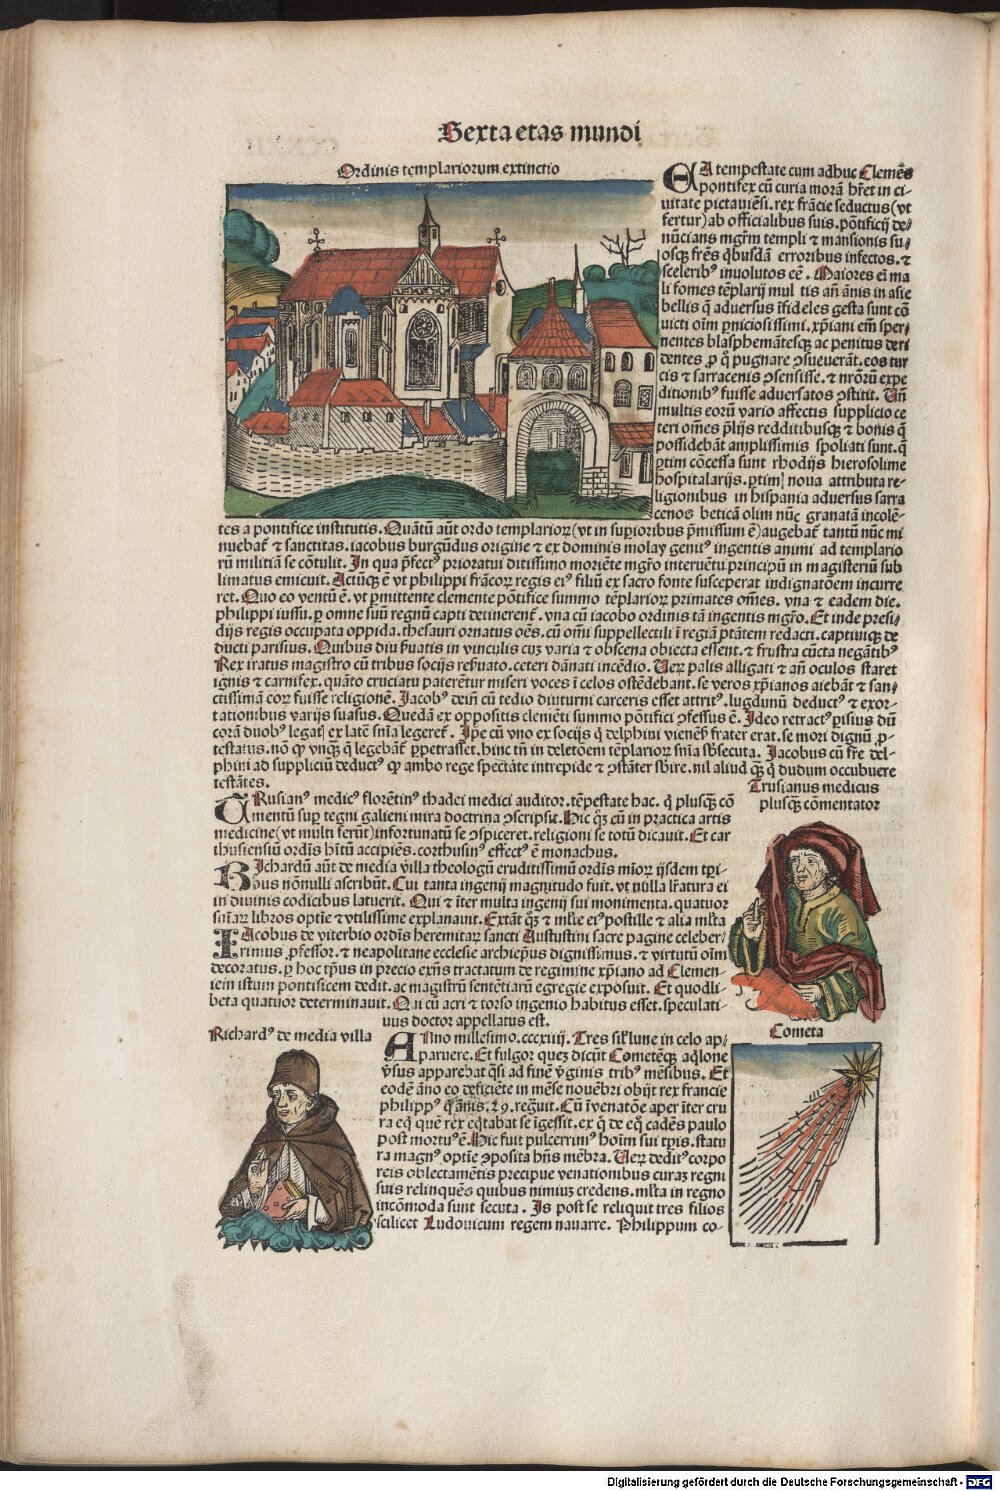 Sexta etas mundi
Ordinis templariorum extinctio
EA tempestate cum adhuc Clemēs
pontifex cū curia morā hr̄et in ci⸗
uitate pictauiēsi. rex frācie seductus (vt
fertur) ab officialibus suis. pōtificij de⸗
nūcians mgr̄m templi ⁊ mansionis su⸗
osqꝫ frēs q̄busdā erroribus infectos. ⁊
sceleribꝰ inuolutos eē. Maiores em̄ ma
li fomes tēplarij mul tis an̄ ānis in asie
bellis q̄ aduersus īfideles gesta sunt cō
uicti oīm ꝑniciosissimi. xp̄iani em̄ sper⸗
nentes blasphemātesqꝫ ac penitus deri
dentes ꝓ qͦ pugnare ꝯsueuerāt. eos tur
cis ⁊ sarracenis ꝯsensisse. ⁊ nrōrū expe
ditionibꝰ fuisse aduersatos ꝯstitit. Un̄
multis eorū vario affectis supplicio ce
teri om̄es p̄lijs redditibusqꝫ ⁊ bonis q̄
possidebāt amplissimis spoliati sunt. q̄
ꝑtim cōcessa sunt rhodijs hierosolime
hospitalarijs. ꝑtim noua attributa re⸗
ligionibus in hispania aduersus sarra
cenos beticā olim nūc granatā incolē⸗
tes a pontifice institutis. Quātū aūt ordo templarioꝝ (vt in suꝑioribus p̄missum ē) augebat̄ tantū nūc mi
nuebat̄ ⁊ sanctitas. iacobus burgūdus origine ⁊ ex dominis molay genitꝰ ingentis animi ad templario
rū militiā se cōtulit. In qua p̄fectꝰ prioratui ditissimo moriēte mgr̄o interuētu principū in magisteriū sub
limatus emicuit. Aciūqꝫ ē vt philippi frācoꝝ regis eiꝰ filiū ex sacro fonte susceperat indignatōem incurre
ret. Quo eo ventū ē. vt ꝑmittente clemente pōtifice summo tēplarioꝝ primates om̄es. vna ⁊ eadem die.
philippi iussu. ꝑ omne suū regnū capti detinerent̄. vna cū iacobo ordinis tā ingentis mgr̄o. Et inde presi⸗
dijs regis occupata oppida. thesauri ornatus oēs. cū om̄i suppellectili ī regiā ptātem redacti. captiuiqꝫ de
ducti parisius. Quibus diu ẜuatis in vinculis cuꝫ varia ⁊ obscena obiecta essent. ⁊ frustra cūcta negātibꝰ
Rex iratus magistro cū tribus socijs reẜuato. ceteri dānati incēdio. Ueꝝ palis alligati ⁊ an̄ oculos staret
ignis ⁊ carnifex. quāto cruciatu paterētur miseri voces ī celos ostēdebant. se veros xp̄ianos aiebāt ⁊ san⸗
ctissimā eoꝝ fuisse religionē. Jacobꝰ dein̄ cū tedio diuturni carceris esset attritꝰ. lugdunū deductꝰ ⁊ exor⸗
tationibus varijs suasus. Quedā ex oppositis clemēti summo pōtifici ꝯfessus ē. Ideo retractꝰ ꝑisius dū
corā duobꝰ legat ex latē snīa legeret̄. Ipē cū vno ex socijs qͥ delphini viēneñ frater erat. se mori dignū ꝓ⸗
testatus. nō ꝙ vnqꝫ qͣ legebāt̄ ꝑpetrasset. hinc tn̄ in deletōem tēplarioꝝ snīa sb̄secuta. Jacobus cū frē del⸗
phini ad suppliciū deductꝰ ꝙ ambo rege spectāte intrepide ⁊ ꝯstāter sb̄ire. nil aliud qꝫ qͦ dudum occubuere
testātes.
Trusianus medicus
plusqꝫ cōmentator
TRusianꝰ medicꝰ florētinꝰ thadei medici auditor. tēpestate hac. qͥ plusqꝫ cō
mentū suꝑ tegni galieni mira doctrina ꝯscripsit. Hic qꝫ cū in practica artis
medicine (vt multi ferūt) infortunatū se ꝯspiceret. religioni se totū dicauit. Et car
thusiensiū ordīs hītū accipiēs. corthusinꝰ effectꝰ ē monachus.
RIchardū aūt de media villa theologū eruditissimū ordīs mīoꝝ ijsdem tꝑi⸗
bus nōnulli ascribūt. Cui tanta ingenij magnitudo fuit. vt nulla lr̄atura ei
in diuinis codicibus latuerit. Qui ⁊ īter multa ingenij sui monimenta. quatuor
sniāꝝ libros optīe ⁊ vtilissime explanauit. Extāt qꝫ ⁊ ml̄te eiꝰ postille ⁊ alia ml̄ta
IAcobus de viterbio ordīs heremitaꝝ sancti Austustini sacre pagine celeber⸗
rimus ꝓfessor. ⁊ neapolitane ecclesie archiep̄us dignissimus. ⁊ virtutū oīm
decoratus. ꝑ hoc tꝑus in precio exn̄s tractatum de regimine xp̄iano ad Clemen⸗
tem istum pontificem dedit. ac magistrū sentētiarū egregie exposuit. Et quodli⸗
beta quatuor determinauit. Qui cū acri ⁊ torso ingenio habitus esset. speculati⸗
uus doctor appellatus est.
Richardꝰ de media villa
Cometa
ANno millesimo. cccxiiij. Tres sil̄ lune in celo ap⸗
paruere. Et fulgor queꝫ dicūt Cometēqꝫ aqͥlone
ṽsus apparebat qͣsi ad finē ṽginis tribꝰ mēsibus. Et
eodē āno eo deficiēte in mēse nouēbri obijt rex francie
philippꝰ qͥ ānis. 29. regͣuit. Cū īvenatōe aper īter cru
ra eqͥ quē rex eqͥtabat se īgessit. ex qͦ de eqͦ cadēs paulo
post mortuꝰ ē. Hic fuit pulcerrimꝰ hoīm sui tꝑis. statu
ra magnꝰ optīe ꝯposita hn̄s mēbra. Ueꝝ deditꝰ corpo
reis oblectamētis precipue venationibus curaꝫ regni
suis relinquēs quibus nimiuꝫ credens. ml̄ta in regno
incōmoda sunt secuta. Is post se reliquit tres filios
scilicet Ludouicum regem nauarre. Philippum co⸗
Digitalisierung gefördert durch die Deutsche Forschungsgemeinschaft - DFG